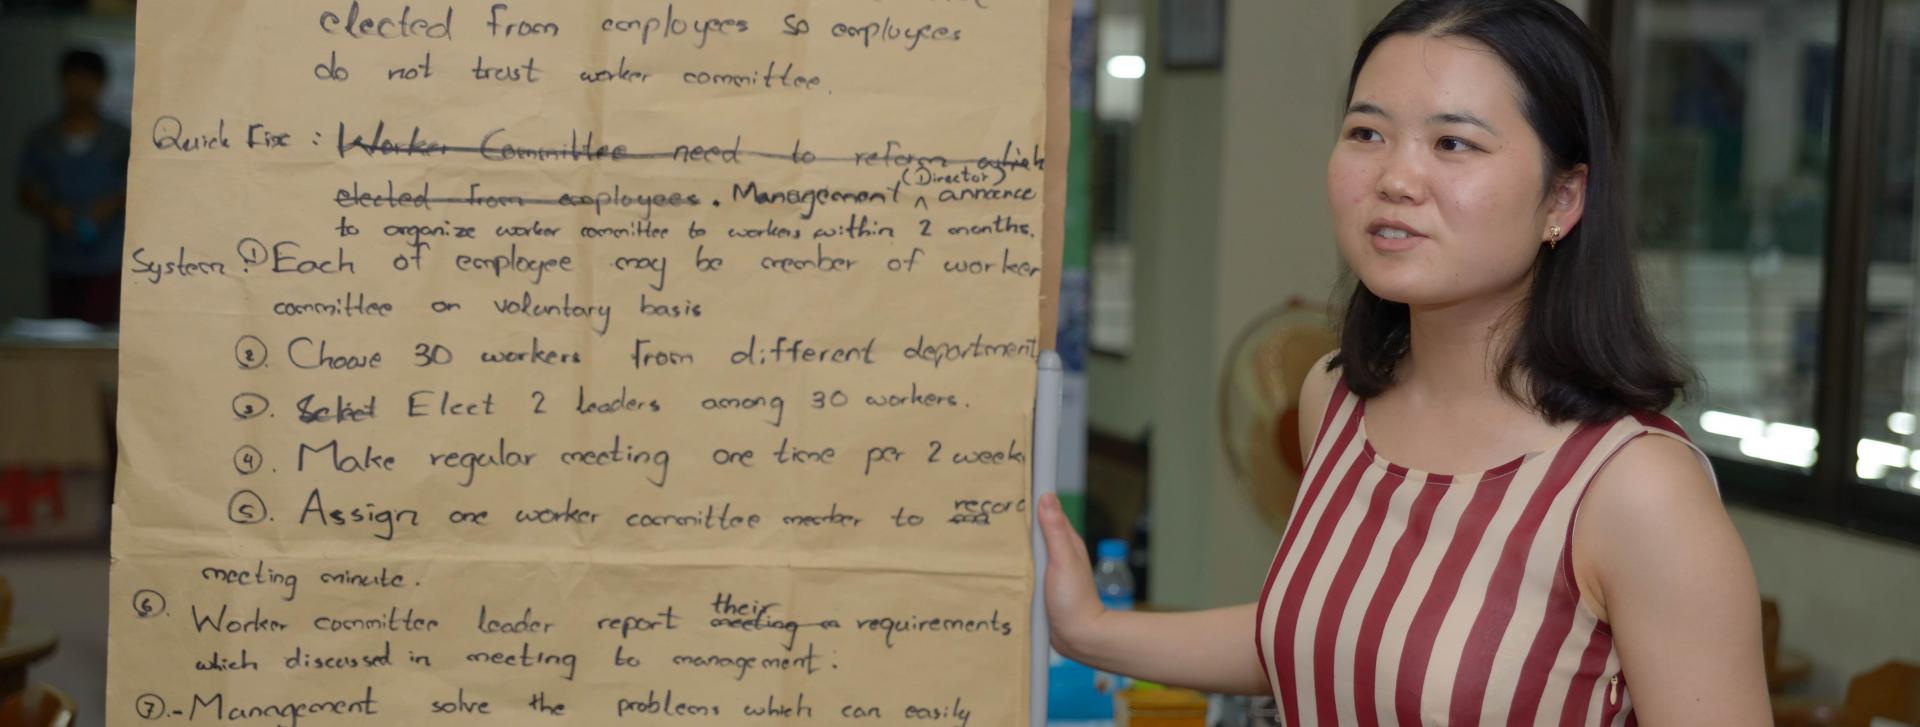 elected from employees so employees
do not trust worker committee.
Quick Fix : Worker Committee need to reform which
elected from employees. Management (Director) announce
to organize worker committee to workers within 2 months.
System : ① Each of employee may be member of worker
committee on voluntary basis
②. Choose 30 workers from different department
③. Select Elect 2 leaders among 30 workers.
④. Make regular meeting one time per 2 week
⑤. Assign one worker committee member to record
meeting minute.
⑥. Worker committee leader report their meeting requirements
which discussed in meeting to management.
⑦.- Management solve the problems which can easily